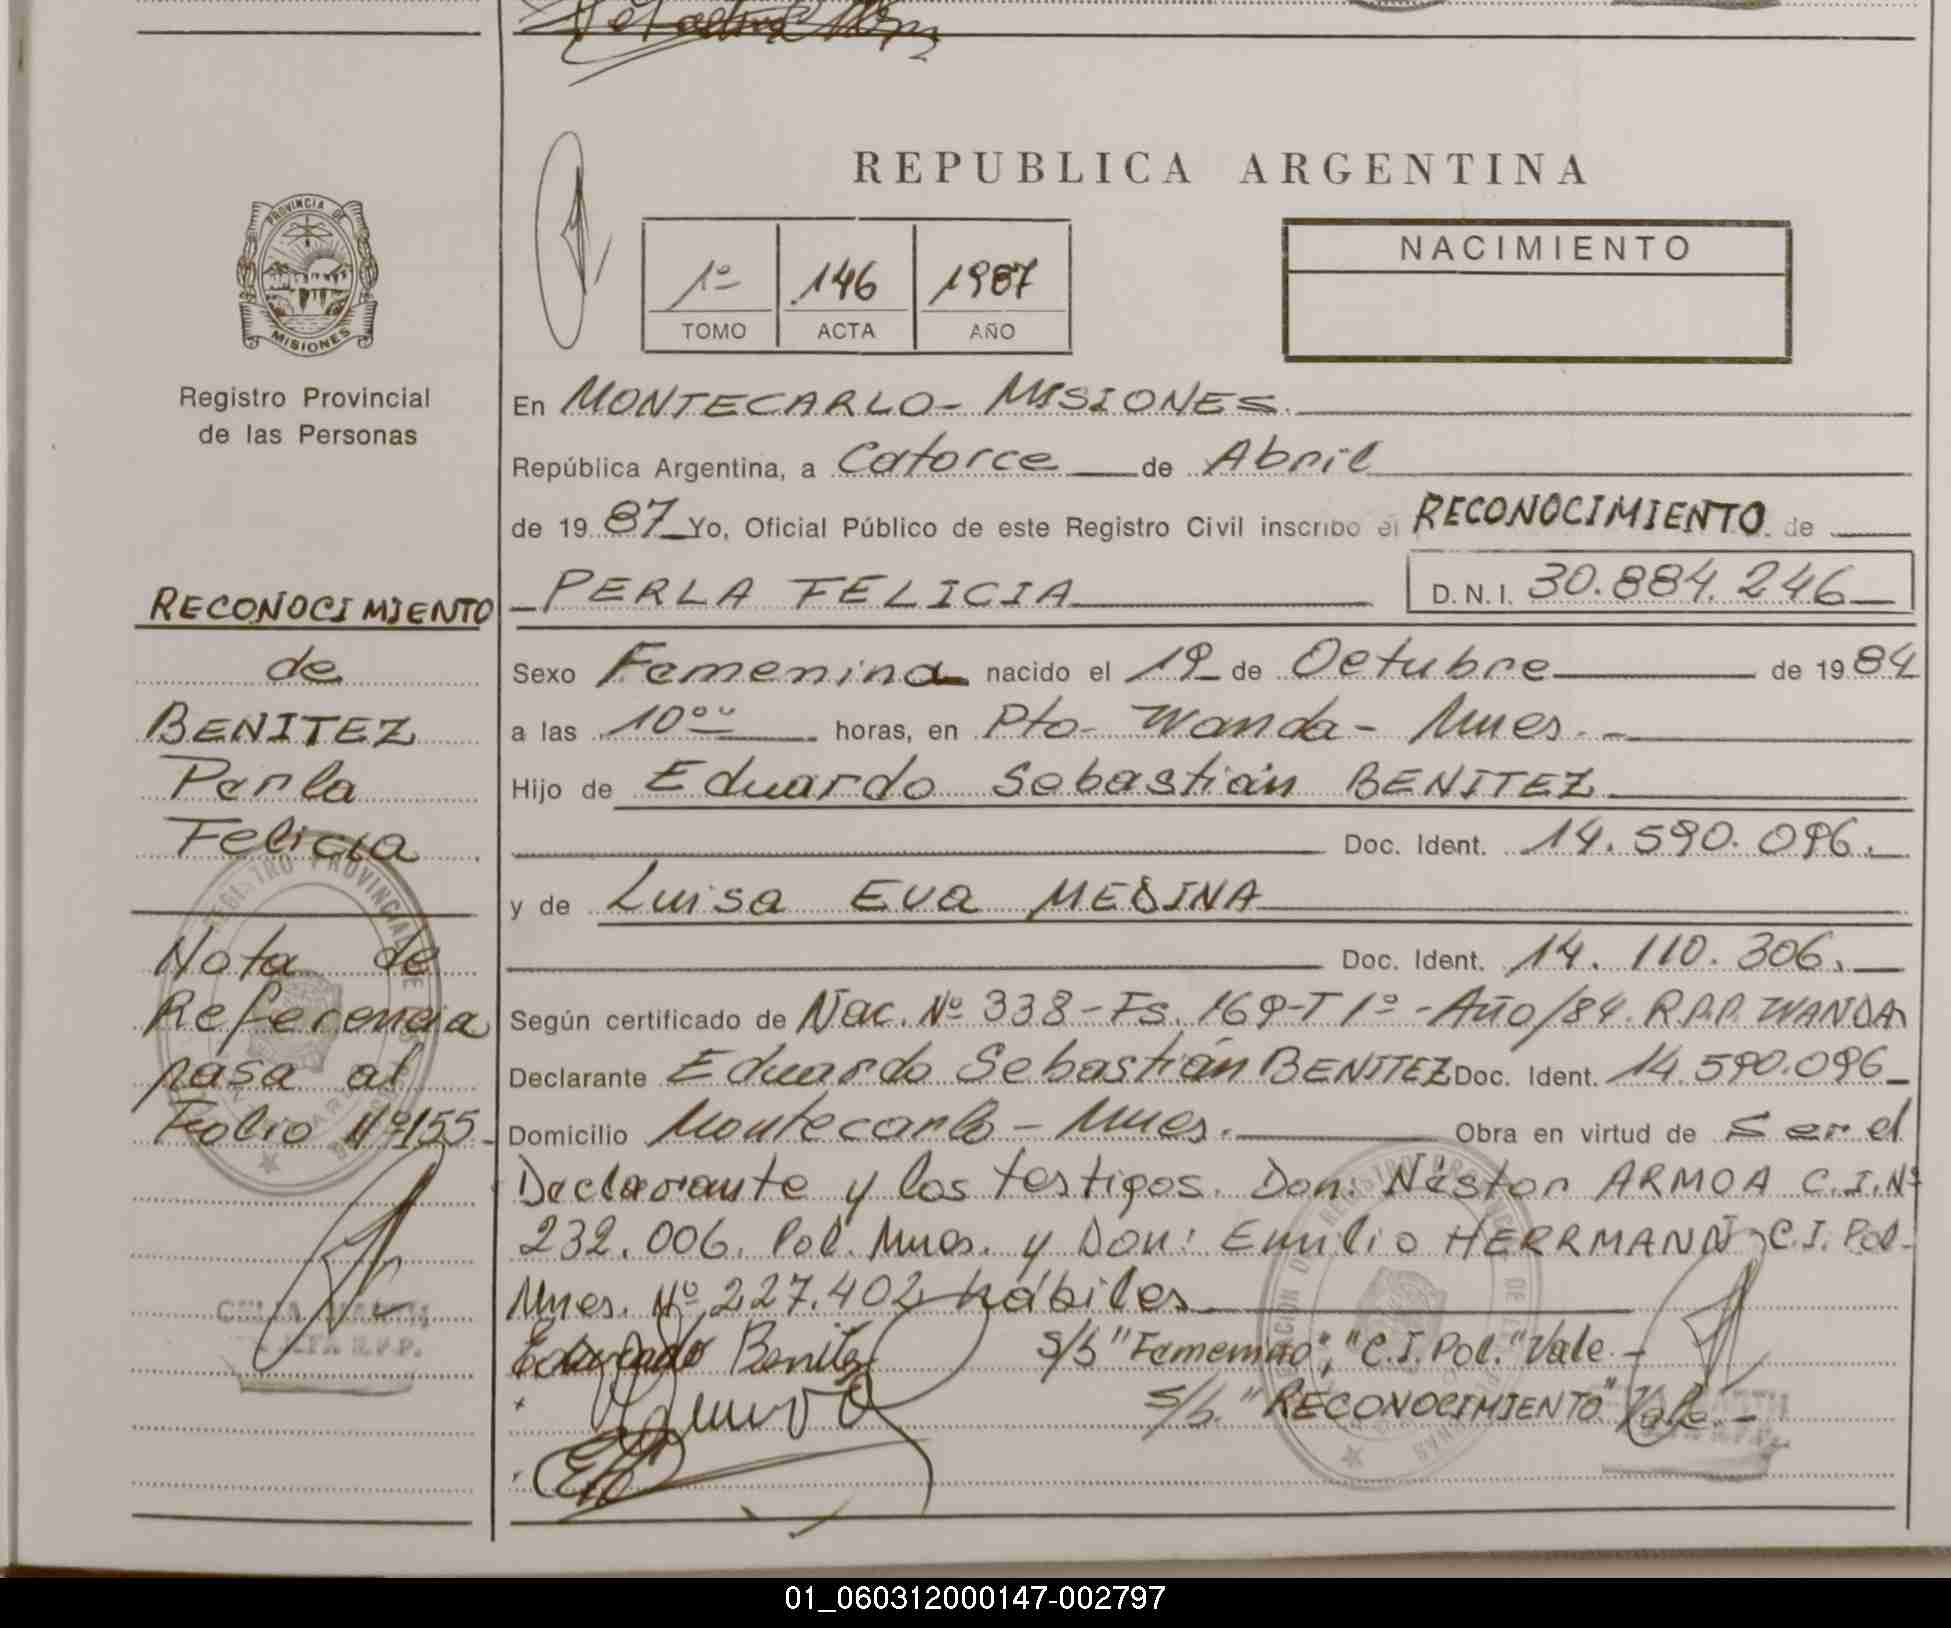 REPUBLICA ARGENTINA
PROVINCIA DE
MISIONES
Registro Provincial
de las Personas
1º 146 1987
TOMO ACTA AÑO
NACIMIENTO
En MONTECARLO- MISIONES.
República Argentina, a Catorce de Abril
de 19 87 Yo, Oficial Público de este Registro Civil inscribo el RECONOCIMIENTO de
PERLA FELICIA D.N.I. 30.884.246
Sexo Femenina nacido el 19 de Octubre de 19 84
a las 10 horas, en Pto- Wanda- Mnes.-
Hijo de Eduardo Sebastián BENITEZ
Doc. Ident. 14.590.096.
y de Luisa Eva MEDINA
Doc. Ident. 14.110.306.
Según certificado de Nac. Nº 338-Fs. 169-T 1º-Año/84. R.P.P. WANDA
Declarante Eduardo Sebastián BENITEZ Doc. Ident. 14.590.096
Domicilio Montecarlo - Mnes. Obra en virtud de Ser el
Declarante y los testigos. Don. Néstor ARMOA C.I.Nº
232.006. Pol. Mnes. y Don: Emilio HERRMANN C.I. Pol.
Mnes. Nº 227.402 hábiles
Eduardo Benitez s/b "Femenino", "C.I. Pol." Vale.-
s/b. "RECONOCIMIENTO" Vale.-
RECONOCIMIENTO
de
BENITEZ
Perla
Felicia
Nota de
Referencia
pasa al
Folio Nº155-
REGISTRO PROVINCIAL DE
01_060312000147-002797